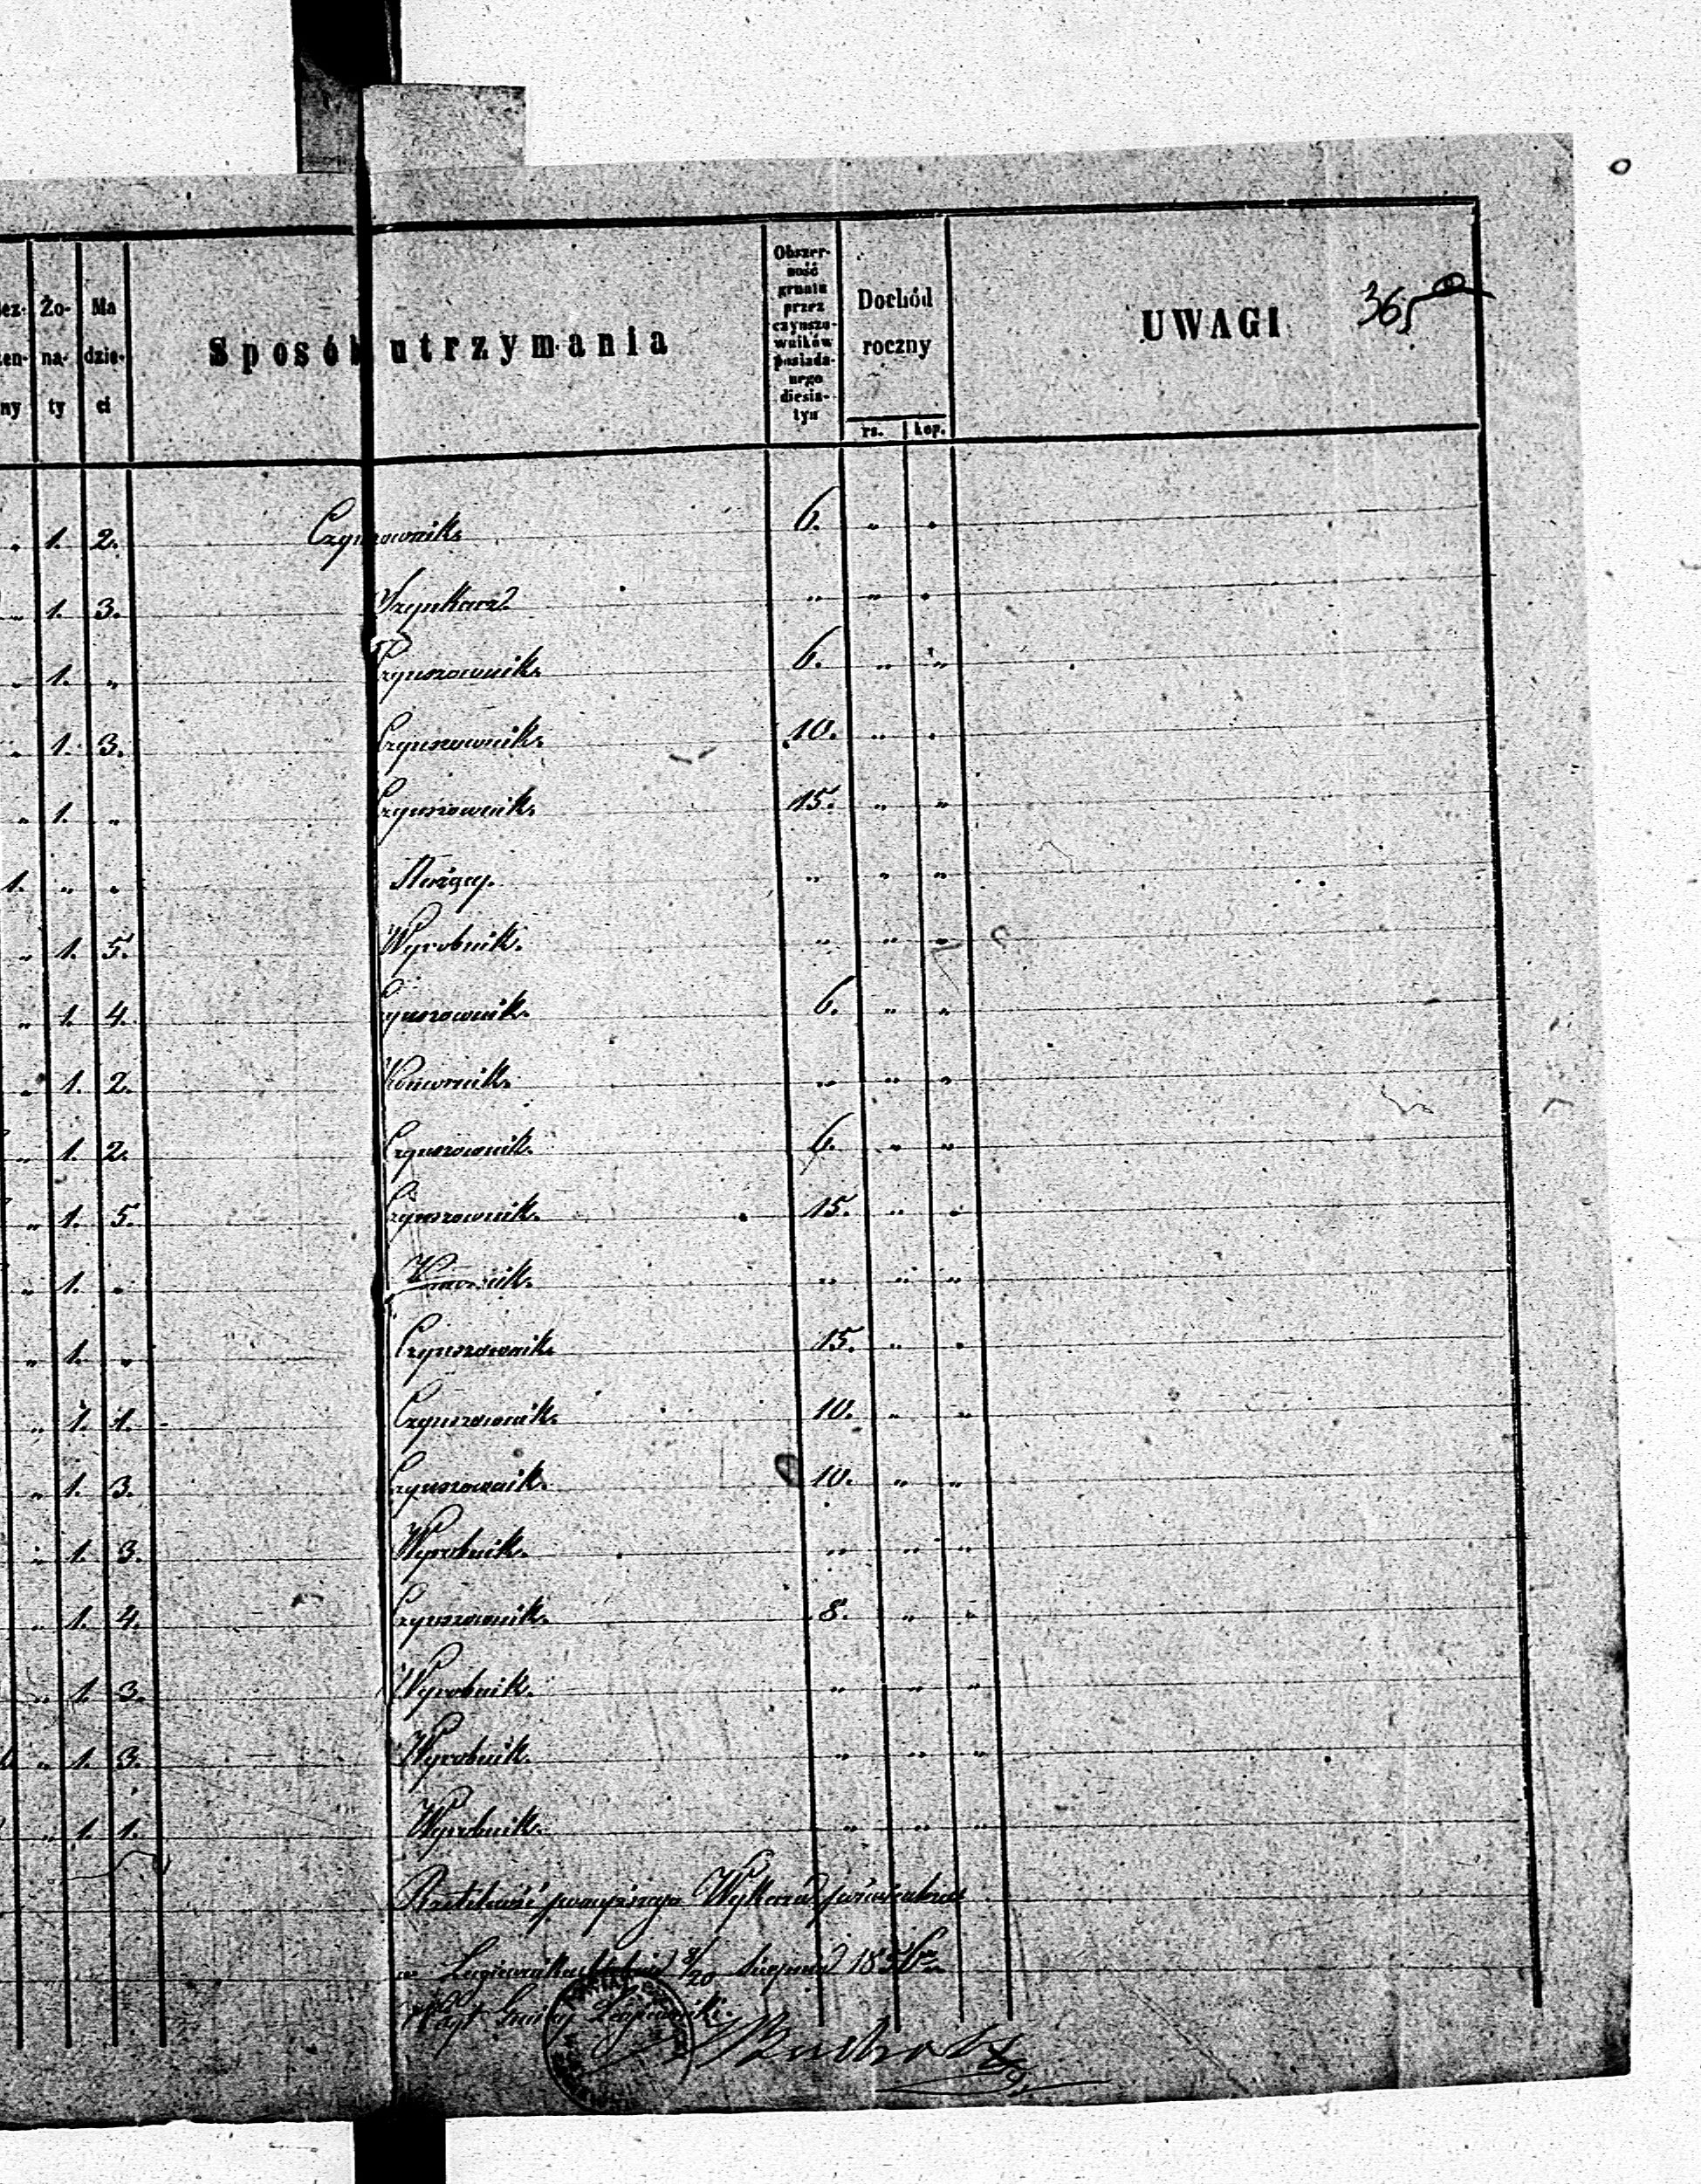 365
Żo-
na-
ty
Ma
dzie-
ci
Sposób utrzymania
Obszer-
ność
gruntu
przez
czynszo-
wników
posiada-
nego
diesia-
tyn
Dochód
roczny
rs. kop.
UWAGI
„ 1. 2. Czynszownik. 6. „ „
„ 1. 3. Szynkarz. „ „ „
„ 1. „ Czynszownik. 6. „ „
„ 1. 3. Czynszownik. 10. „ „
„ 1. „ Czynszownik. 15. „ „
1. „ „ Służący. „ „ „
„ 1. 5. Wyrobnik. „ „ „
„ 1. 4. Czynszownik. 6. „ „
„ 1. 2. Komornik. „ „ „
„ 1. 2. Czynszownik. 6. „ „
„ 1. 5. Czynszownik. 15. „ „
„ 1. „ Komornik. „ „ „
„ 1. „ Czynszownik. 15. „ „
„ 1. 1. Czynszownik. 10. „ „
„ 1. 3. Czynszownik. 10. „ „
„ 1. 3. Wyrobnik. „ „ „
„ 1. 4. Czynszownik. 8. „ „
„ 1. 3. Wyrobnik. „ „ „
„ 1. 3. Wyrobnik. „ „ „
„ 1. 1. Wyrobnik. „ „ „
Rzetelność powyższego Wykazu poświadcza
w dnia 8/20 Sierpnia 1856 r.
Wójt Gminy